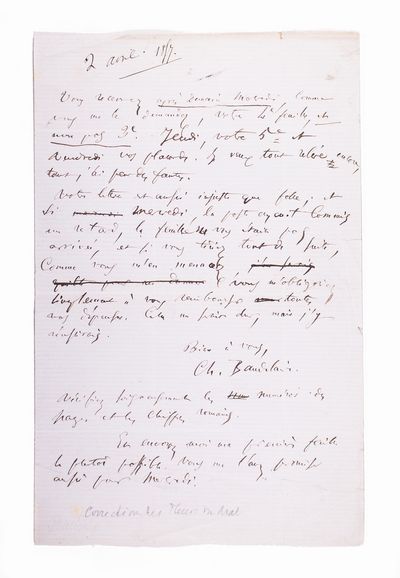 2 avril. 1857.
Vous recevrez après demain Mercredi, comme
vous me le demandez, votre 4e feuille, et
non pas 3e. Jeudi, votre 5e et
Vendredi vos placards. Je veux tout relire encore,
tout,
Votre lettre est aussi injuste que folle; et
si mercredi la poste ayant commis
un retard, la feuille ne vous était pas
arrivée, et si vous tiriez tout de suite,
comme vous m'en menacez,
je vous obligerai
simplement à vous rembourser toutes
vos dépenses. Cela me serait dur, mais j'y
réussirais.
Bien à vous,
Ch. Baudelaire.
Vérifiez soigneusement les numéros des
pages et les chiffres romains.
En envoyez moi ma première feuille
le plutôt possible. Vous me l'avez promise
aussi pour Mercredi.
Correction des Fleurs du Mal